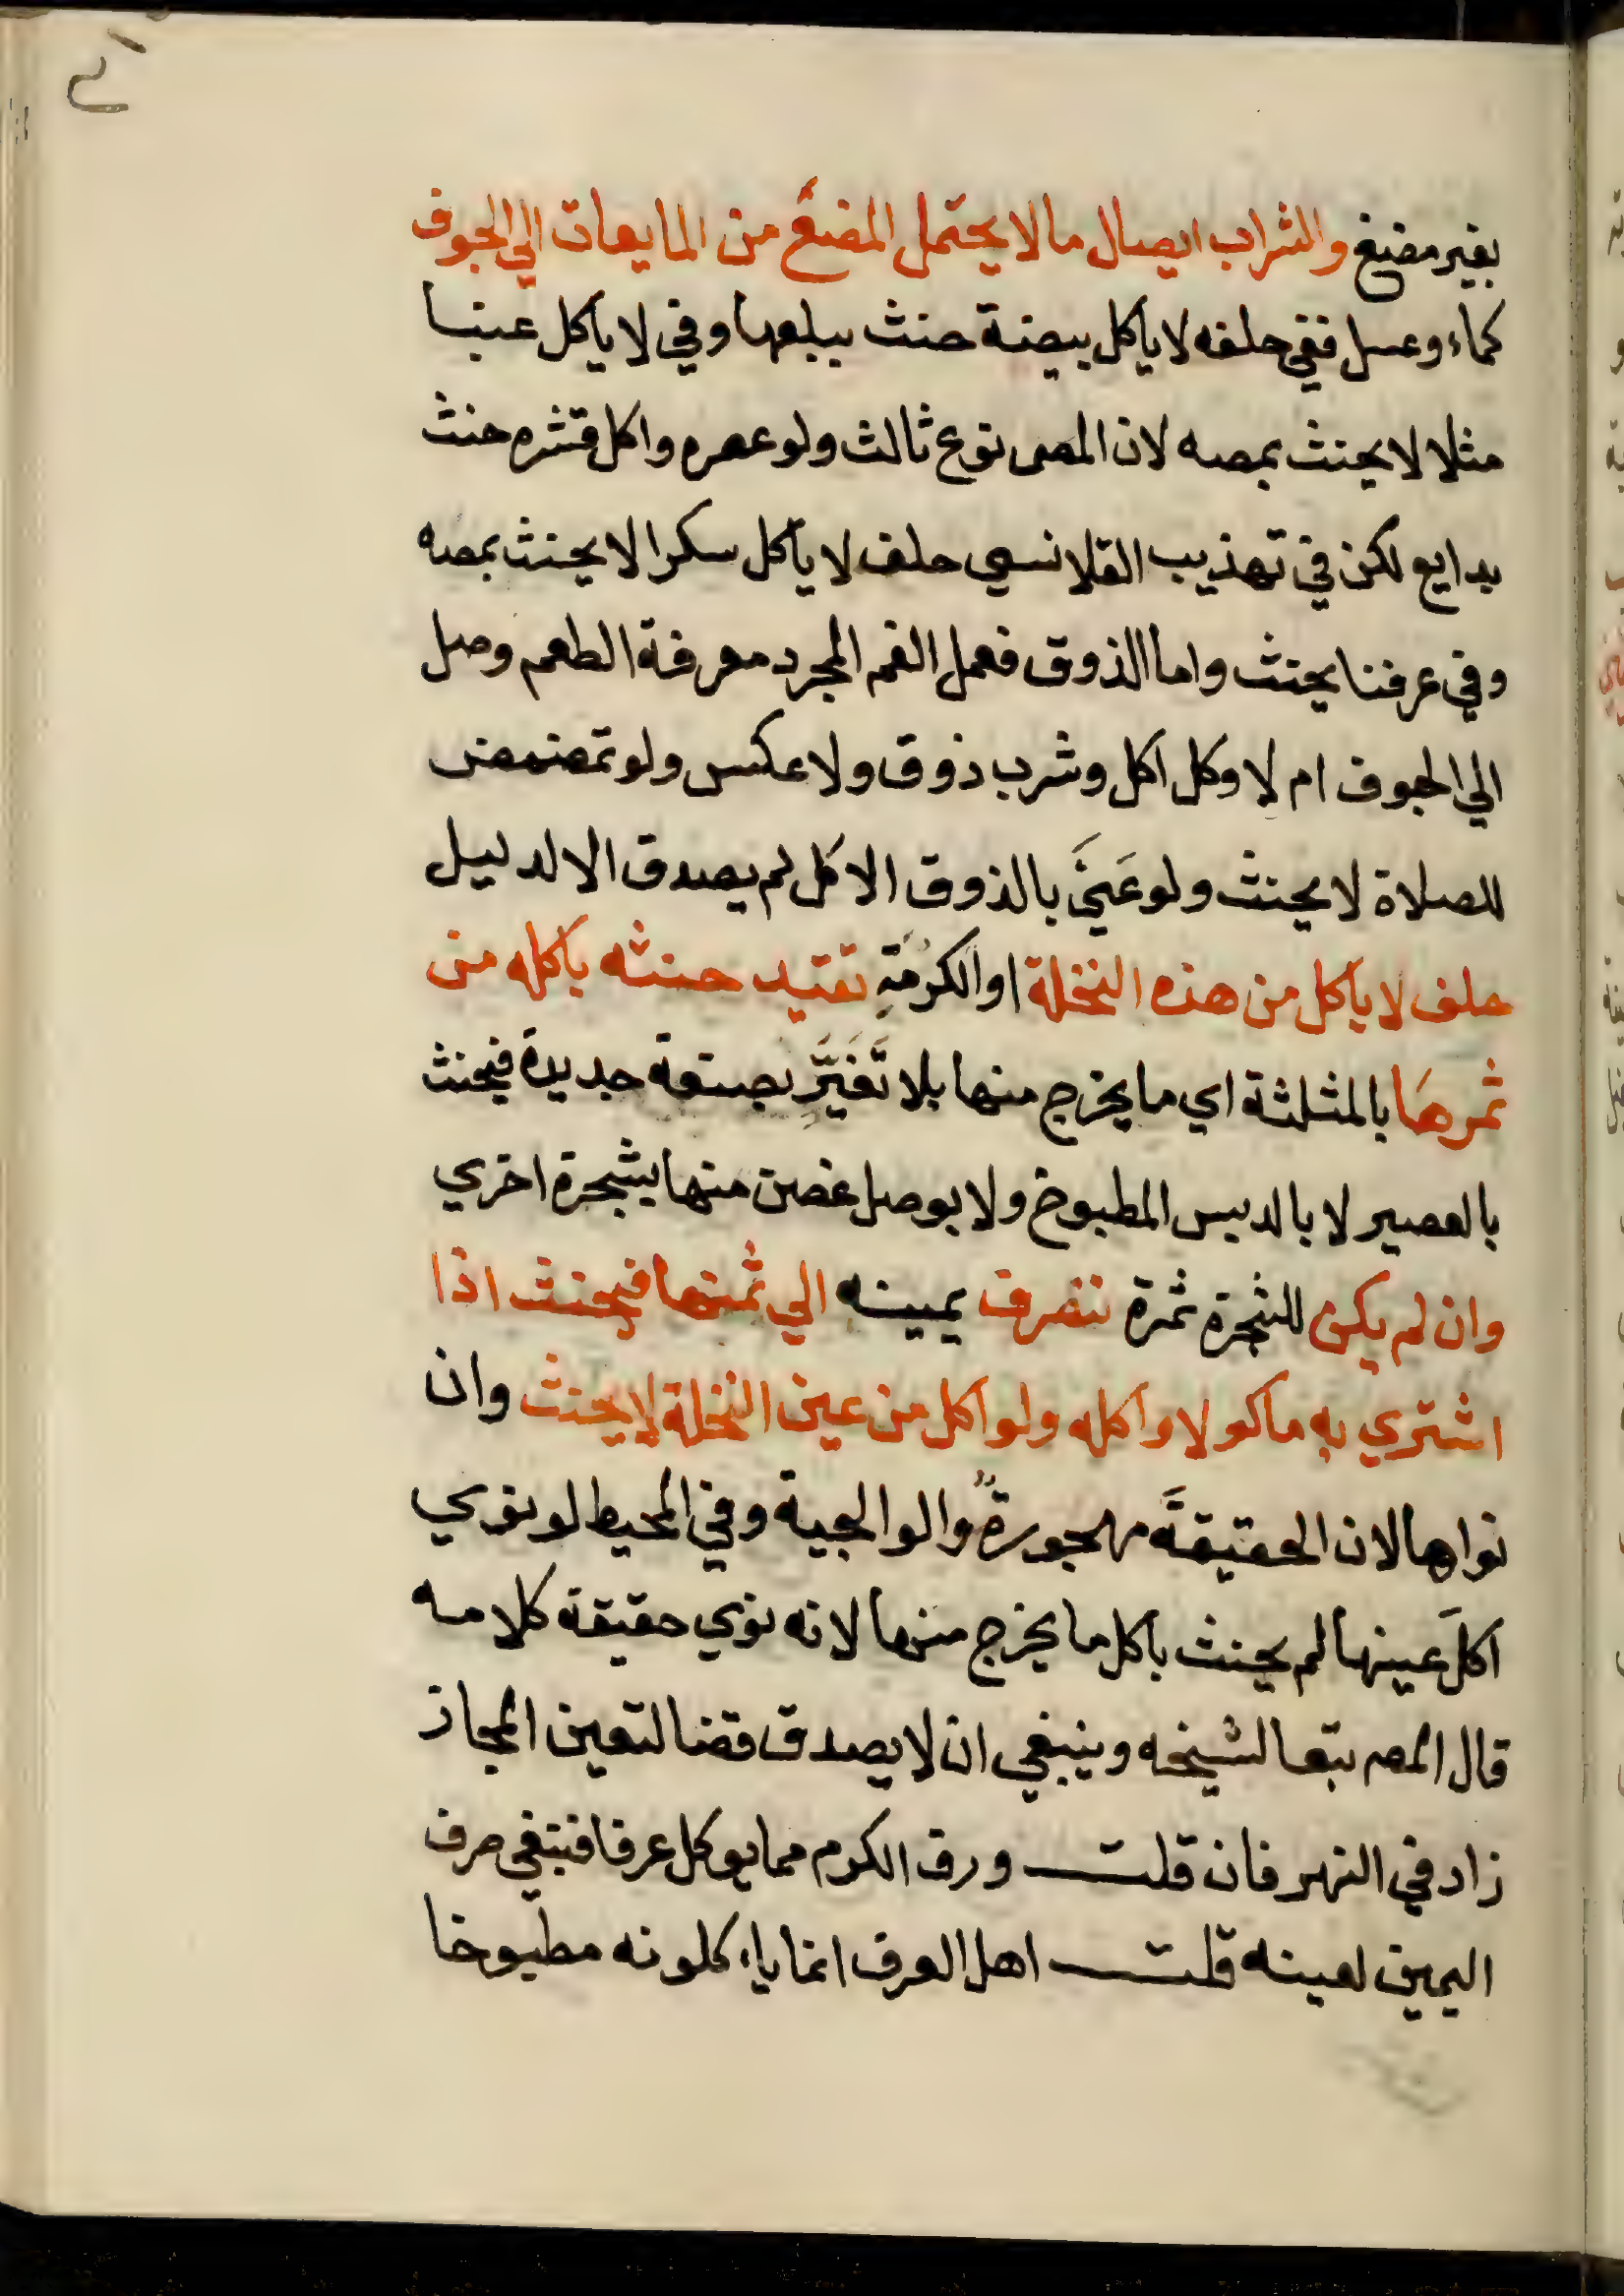 بغير مضغ والشراب ايصال ما لا يحتمل المضغ من المايعات الي الجوف
كماء وعسل ففي حلفه لا ياكل بيضة حنث ببلعها وفي لا ياكل عنبا
مثلا لا يحنث بمصه لان المص نوع ثالث ولو عصره واكل قشره حنث
بدايع لكن في تهذيب القلانسي حلف لا ياكل سكرا لا يحنث بمصه
وفي عرفنا يحنث واما الذوق فعمل الفم المجرد معرفة الطعم وصل
الي الجوف ام لا وكل اكل وشرب ذوق ولا عكس ولو تمضمض
للصلاة لا يحنث ولو عَنَيَ بالذوق الاكل لم يصدق الا لدليل
حلف لا ياكل من هذه النخلة او الكرمة تقيد حنثه باكله من
ثمرهَا بالمثلثة اي ما يخرج منها بلا تَغَيَّرِ بصنعة جديدة فيحنث
بالعصير لا بالدبس المطبوخ ولا بوصل غصن منها بشجرة اخري
وان لم يكن للشجرة ثمرة تنصرف يمينه الي ثمنها فيحنث اذا
اشتري به ماكولا واكله ولو اكل من عين النخلة لا يحنث وان
نواها لان الحقيقةَ مهجورةٌ والوالجية وفي المحيط لو نوي
اكلَ عينها لم يحنث باكل ما يخرج منها لانه نوي حقيقة كلامه
قال المصـ تبعا لشيخه وينبغي ان لا يصدق قضا لتعين المجاز
زاد في النهر فان قلت ورق الكرم مما يوكل عرفا فينبغي صرف
اليمين لعينه قلت اهل العرف انما ياءكلونه مطبوخا